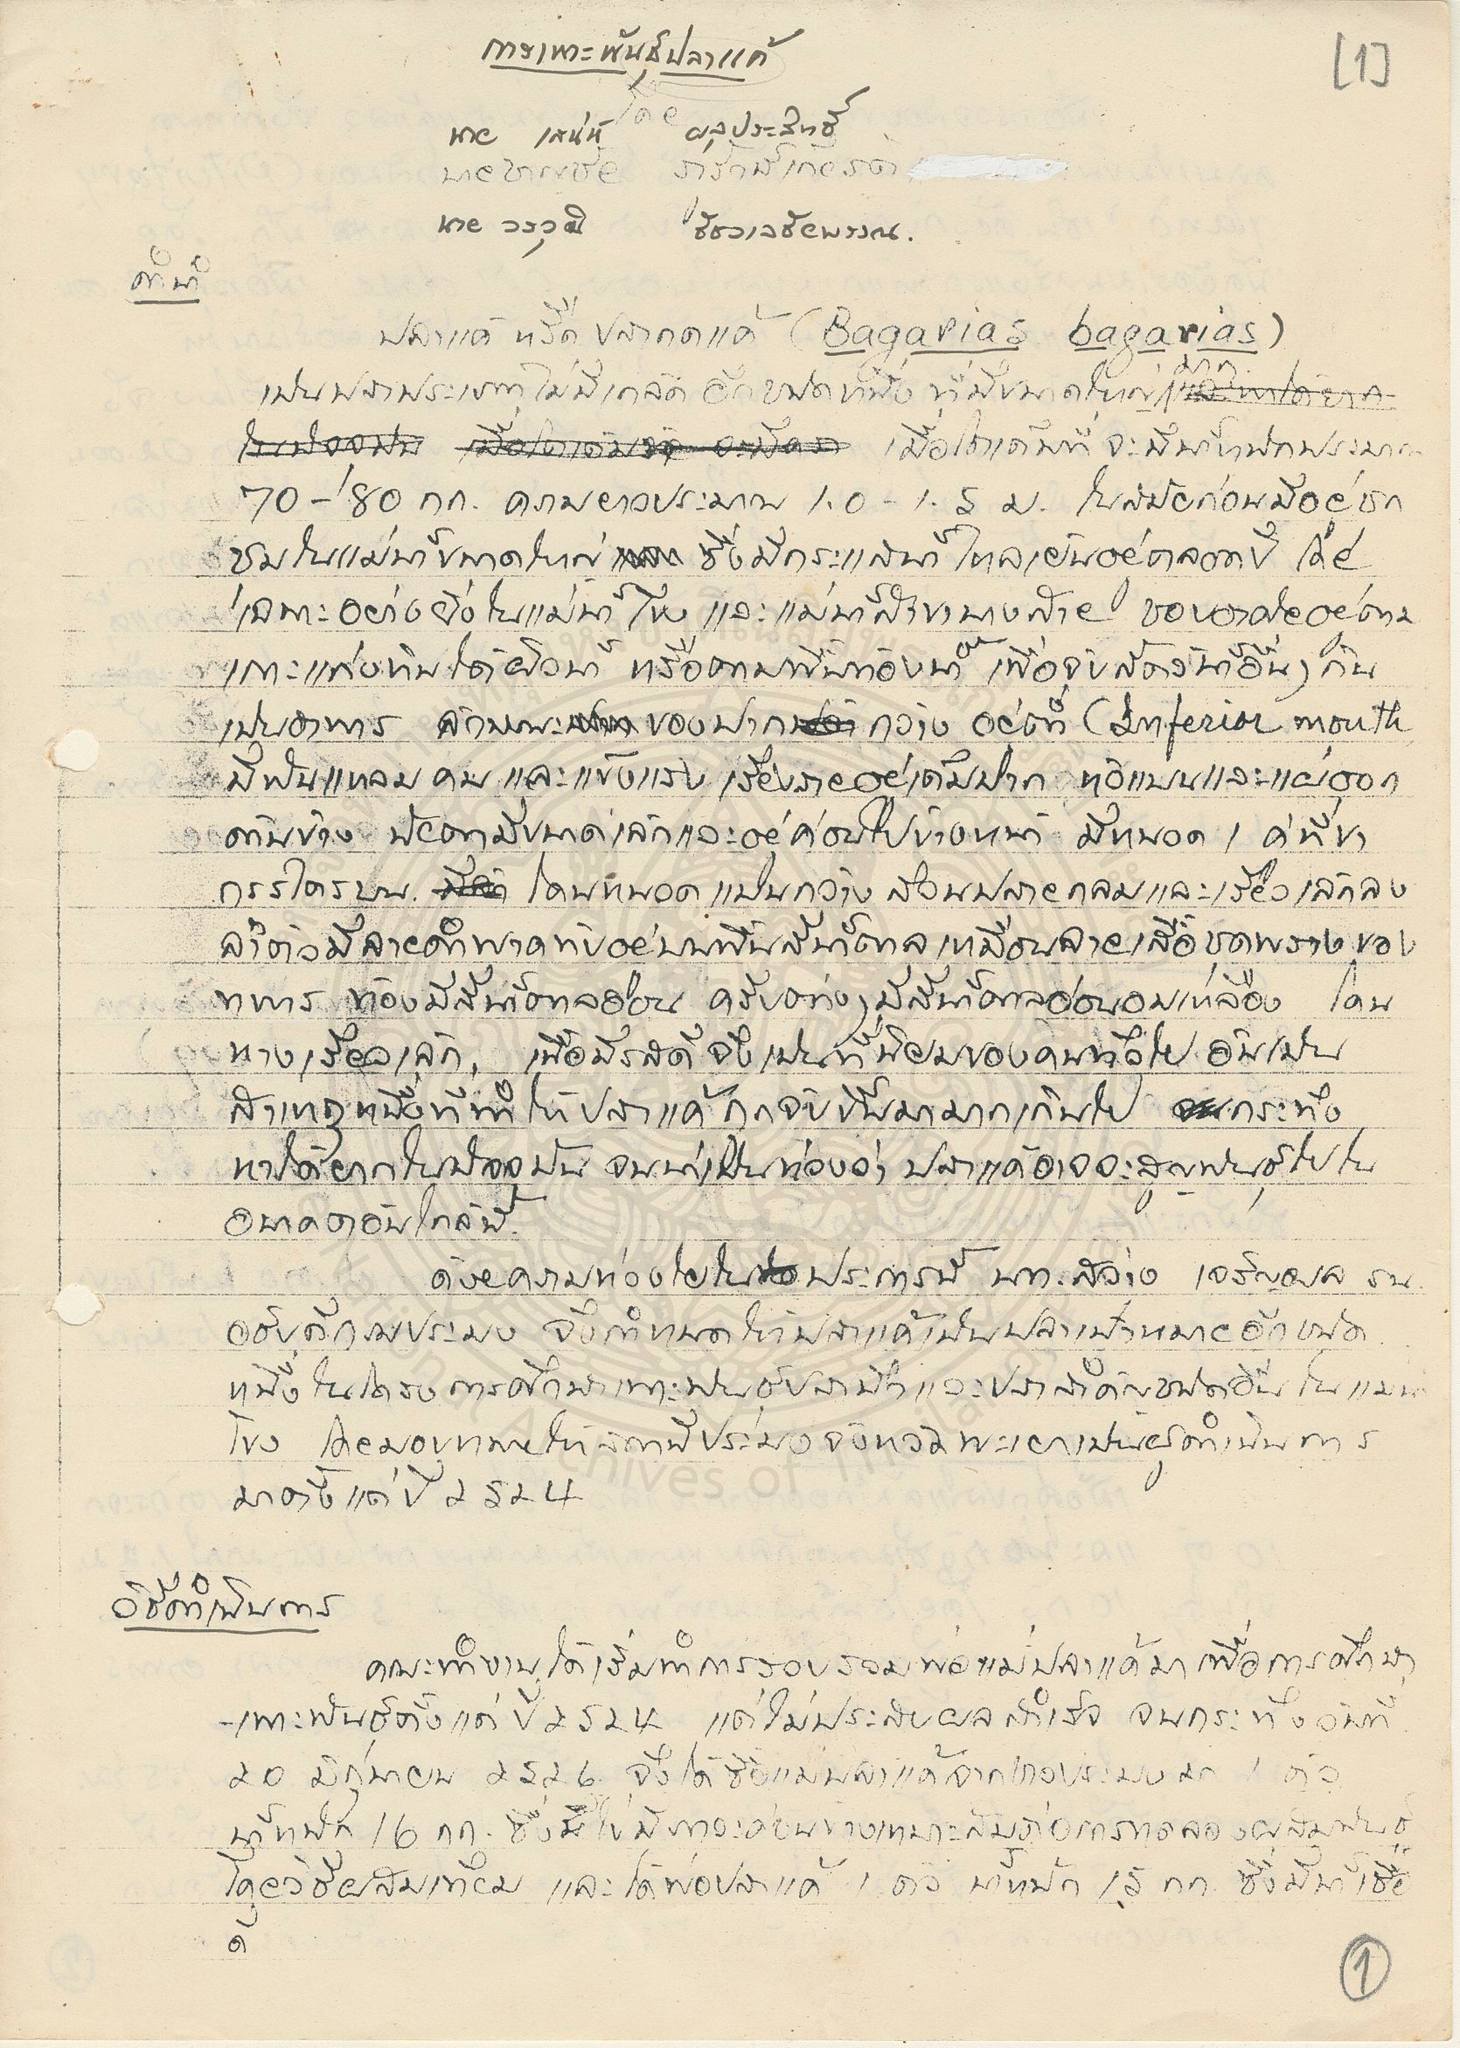 การเพาะพันธุ์ปลาแค้
[1]
โดย
นาย เสน่ห์ ผลประสิทธิ์
นาย วรวุฒิ ชัชวาลชัยพรรณ.
คำนำ
ปลาแค้ หรือ ปลากดแค้ (Bagarias bagarias)
เป็นปลาประเภทไม่มีเกล็ด อีกชนิดหนึ่ง ที่มีขนาดใหญ่มาก
เมื่อโตเต็มที่ จะมีน้ำหนักประมาณ
70-80 กก. ความยาวประมาณ 1.0 - 1.5 ม. ในสมัยก่อนมีอยู่ชุก
ชุมในแม่น้ำขนาดใหญ่ ซึ่งมีกระแสน้ำไหลเย็นอยู่ตลอดปี โดย
เฉพาะอย่างยิ่งในแม่น้ำโขง และแม่น้ำสาขาบางสาย ชอบอาศัยอยู่ตาม
เกาะแก่งหินใต้ผิวน้ำ หรือตามพื้นท้องน้ำ เพื่อจับสัตว์น้ำอื่นๆ กิน
เป็นอาหาร ลักษณะของปากกว้าง อยู่ต่ำ (Inferior mouth
มีฟันแหลม คม และแข็งแรง เรียงรายอยู่เต็มปาก หัวแบนและแผ่ออก
ด้านข้าง นัยตามีขนาดเล็กและอยู่ค่อนไปข้างหน้า มีหนวด 1 คู่ที่ขา
กรรไกรบน. โคนหนวดแบนกว้าง ส่วนปลายกลมและเรียวเล็กลง
ลำตัวมีลายดำพาดทับอยู่บนพื้นสีน้ำตาล เหมือนลายเสื้อชุดพรางของ
ทหาร ท้องมีสีน้ำตาลอ่อน ครีบต่างๆ มีสีน้ำตาลอ่อนอมเหลือง โคน
หางเรียวเล็ก, เนื้อมีรสดี จึงเป็นที่นิยมของคนทั่วไป อันเป็น
สาเหตุหนึ่งที่ทำให้ปลาแค้ถูกจับขึ้นมามากเกินไป กระทั่ง
หาได้ยากในปัจจุบัน จนน่าเป็นห่วงว่า ปลาแค้อาจจะสูญพันธุ์ไปใน
อนาคตอันใกล้นี้
ด้วยความห่วงใยในประการนี้ นท.สว่าง เจริญผล รน.
อธิบดีกรมประมง จึงกำหนดให้ปลาแค้เป็นปลาเป้าหมายอีกชนิด
หนึ่งในโครงการศึกษาเพาะพันธุ์ปลาบึกและปลาสำคัญชนิดอื่นในแม่น้ำ
โขง โดยมอบหมายให้สถานีประมงจังหวัดพะเยาเป็นผู้ดำเนินการ
มาตั้งแต่ปี 2524
วิธีดำเนินการ
คณะทำงานได้เริ่มทำการรวบรวมพ่อแม่ปลาแค้มาเพื่อการศึกษา
เพาะพันธุ์ตั้งแต่ปี 2524 แต่ไม่ประสบผลสำเร็จ จนกระทั่งวันที่
20 มิถุนายน 2526 จึงได้ซื้อแม่ปลาแค้จากชาวประมงมา 1 ตัว
น้ำหนัก 16 กก. ซึ่งมีไข่มีภาวะค่อนข้างเหมาะสมต่อการทดลองผสมพันธุ์
โดยวิธีผสมเทียม และได้พ่อปลาแค้ 1 ตัว น้ำหนัก 15 กก. ซึ่งมีน้ำเชื้อ
ดี
1